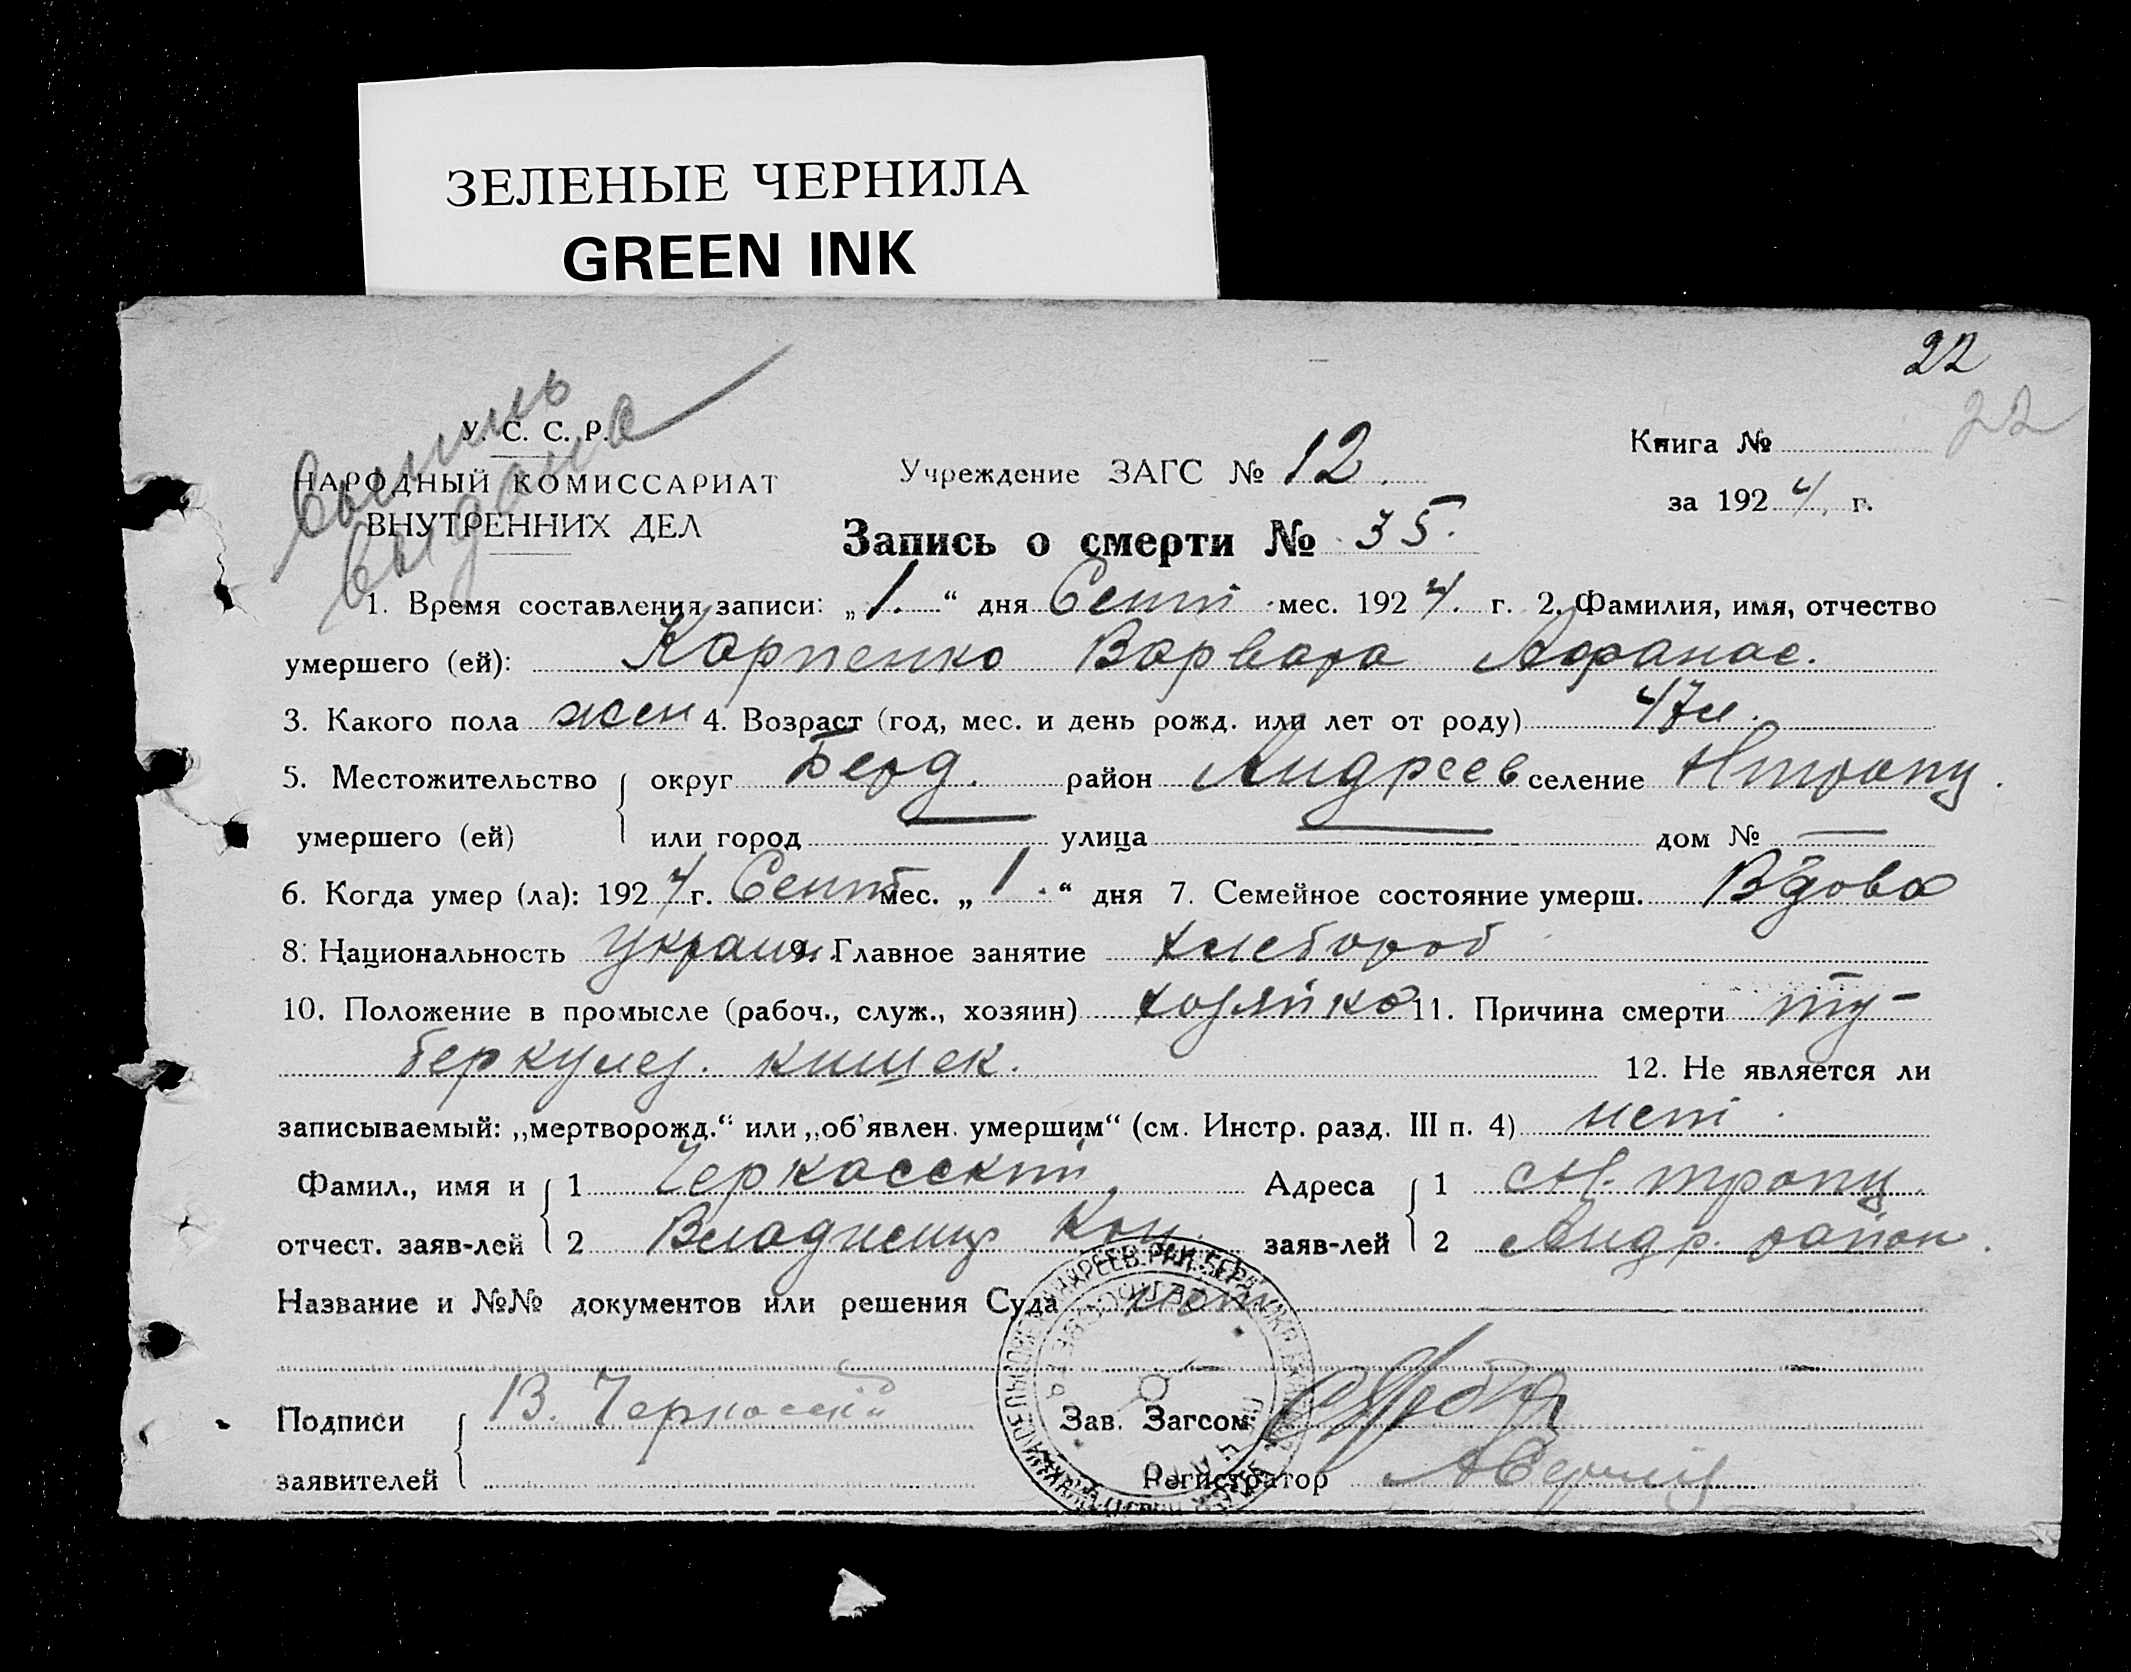 ЗЕЛЕНЫЕ ЧЕРНИЛА
GREEN INK
22
22
Выпись
выдана
У. С. С. Р.
НАРОДНЫЙ КОМИССАРИАТ
ВНУТРЕННИХ ДЕЛ
Учреждение ЗАГС № 12.
Книга №
за 1924 г.
Запись о смерти № 35.
1. Время составления записи: „1.“ дня Сент мес. 1924. г. 2. Фамилия, имя, отчество
умершего (ей): Карпенко Варвара Афанас.
3. Какого пола жен 4. Возраст (год, мес. и день рожд. или лет от роду) 47 л.
5. Местожительство округ Берд. район Андреев селение
умершего (ей) или город — улица — дом № —
6. Когда умер (ла): 1924 г. Сент мес. „1.“ дня 7. Семейное состояние умерш. Вдова
8. Национальность Украин. 9. Главное занятие хлебороб
10. Положение в промысле (рабоч., служ., хозяин) хозяйка 11. Причина смерти ту-
беркулез. кишек. 12. Не является ли
записываемый: „мертворожд.“ или „об'явлен. умершим“ (см. Инстр. разд. III п. 4) нет.
Фамил., имя и 1 Черкасский Адреса 1
отчест. заяв-лей 2 Владимир Кон. заяв-лей 2 Андр. район.
Название и №№ документов или решения Суда нет
Подписи В. Черкасский Зав. Загсом
заявителей Регистратор